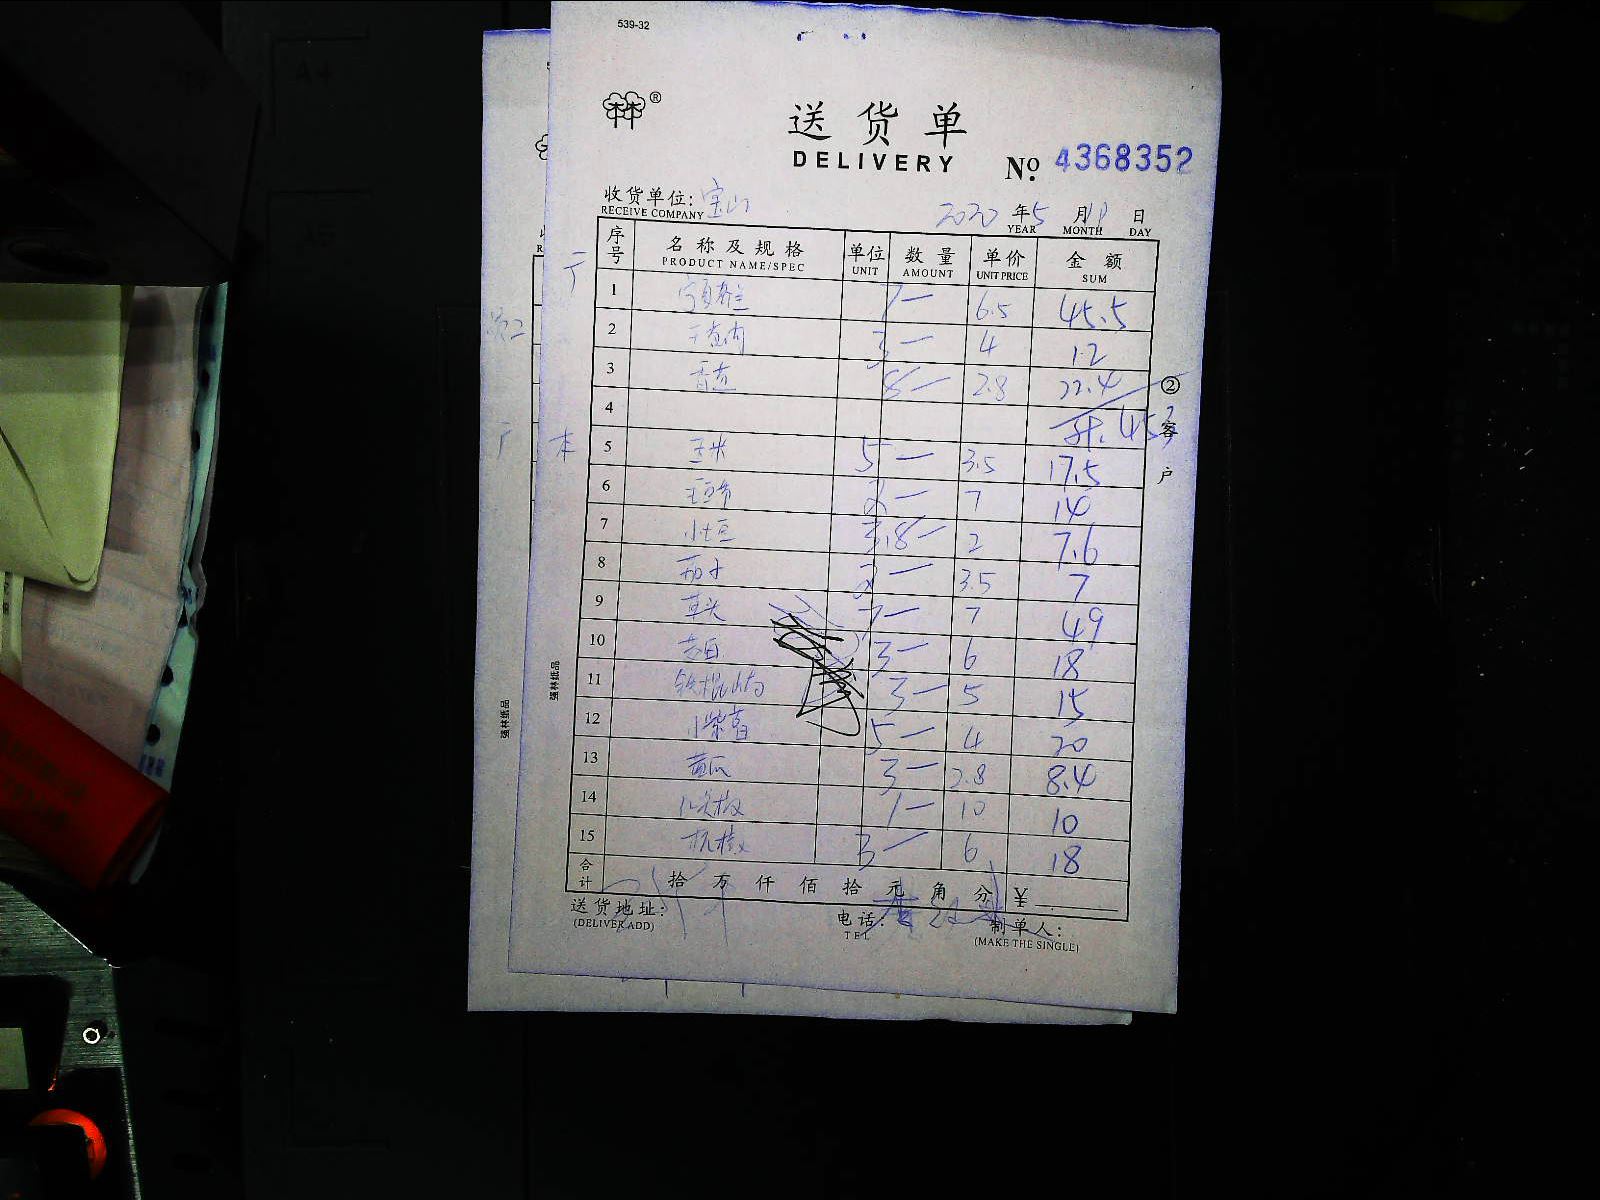 539-32
®
送货单
DELIVERY
№ 4368352
收货单位: 宝山
RECEIVE COMPANY
2020 年 5 月 日
YEAR MONTH DAY
序号 名称及规格 单位 数量 单价 金额
PRODUCT NAME/SPEC UNIT AMOUNT UNIT PRICE SUM
1 7— 6.5 45.5
2 3— 4 12
3 香菇 8— 2.8 22.4
4
5 玉米 5— 3.5 17.5
6 2— 7 14
7 小土豆 3.8— 2 7.6
8 茄子 2— 3.5 7
9 草头 7— 7 49
10 茭白 3— 6 18
11 铁棍山药 3— 5 15
12 5— 4 20
13 黄瓜 3— 2.8 8.4
14 1— 10 10
15 杭椒 3— 6 18
合计 拾 万 仟 佰 拾 元 角 分 ¥
送货地址:
(DELIVER ADD)
电话:
TEL
制单人:
(MAKE THE SINGLE)
②客户
强林纸品
强林纸品